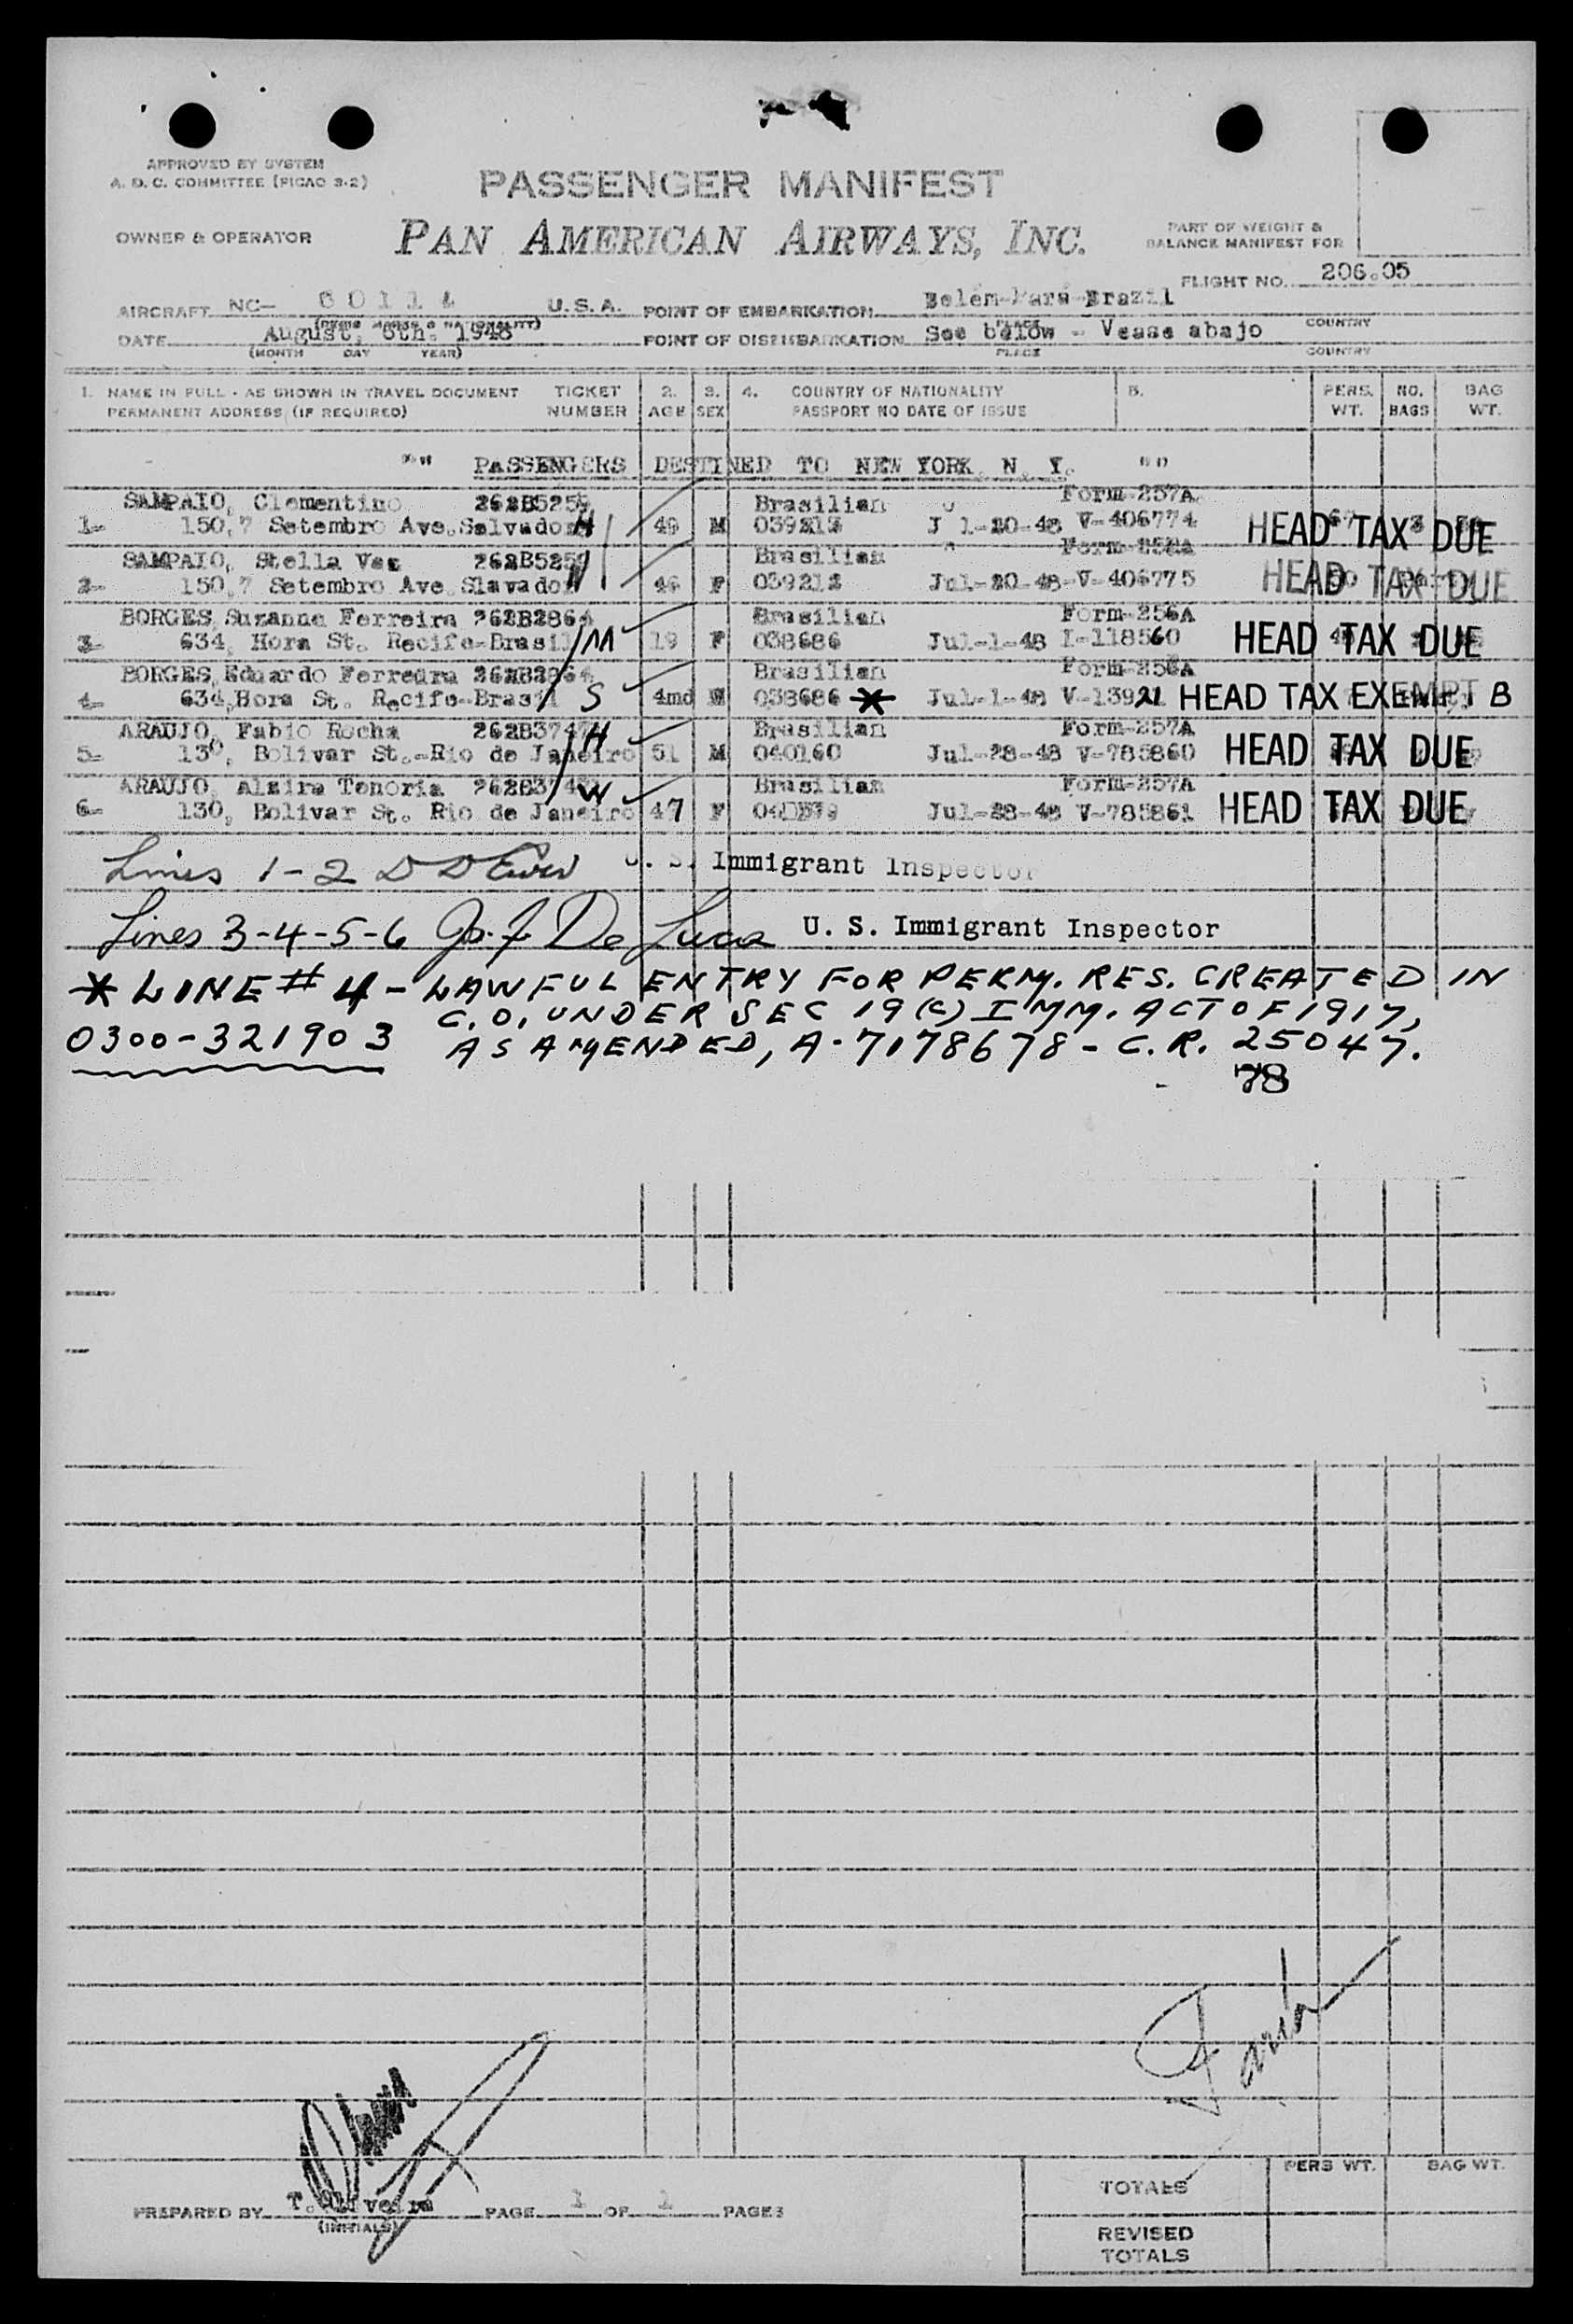 APPROVED BY SYSTEM
A. D. C. COMMITTEE (PICAO 3-2)
PASSENGER MANIFEST
OWNER & OPERATOR
PAN AMERICAN AIRWAYS, INC.
PART OF WEIGHT &
BALANCE MANIFEST FOR
FLIGHT NO. 206.05
AIRCRAFT NC- U.S.A. POINT OF EMBARKATION Belém-Pará-Brazil
DATE August, 1948 POINT OF DISEMBARKATION See below - Vease abajo COUNTRY
(MONTH DAY YEAR) PLACE COUNTRY
1. NAME IN FULL - AS SHOWN IN TRAVEL DOCUMENT TICKET 2. 3. 4. COUNTRY OF NATIONALITY 5. PERS. NO. BAG
PERMANENT ADDRESS (IF REQUIRED) NUMBER AGE SEX PASSPORT NO DATE OF ISSUE WT. BAGS WT.
PASSENGERS DESTINED TO NEW YORK, N. Y.
SAMPAIO, Clementino 262B5259 Brasilian Form-257A
1- 150,7 Setembro Ave.Salvador H 49 M J 1-20-48 V-406774 HEAD TAX DUE
SAMPAIO, Stella Vaz 262B5259 Brasilian
2- 150,7 Setembro Ave.Slavador 46 F Jul-20-48-V-406775 HEAD TAX DUE
BORGES, Suzanne Ferreira Brasilian Form-256A
3- 634, Hora St. Recife-Brasil M 19 F 038686 Jul-1-48 I-118560 HEAD TAX DUE
BORGES, Eduardo Ferreira Brasilian
4- 634,Hora St. Recife-Brasil S 4md 038686 * Jul-1-48 V-13921 HEAD TAX EXEMPT B
ARAUJO, Fabio Rocha 262B3747 Brasilian Form-257A
5- 130, Bolivar St.-Rio de Janeiro H 51 M 040160 Jul-28-48 V-785860 HEAD TAX DUE
ARAUJO, Alzira Tenoria Brasilian Form-257A
6- 130, Bolivar St. Rio de Janeiro W 47 F Jul-28-48 V-785861 HEAD TAX DUE
Lines 1-2 U. S. Immigrant Inspector
Lines 3-4-5-6 Jo. J. De Luca U. S. Immigrant Inspector
* LINE # 4 - LAWFUL ENTRY FOR PERM. RES. CREATED IN
C.O. UNDER SEC 19 (c) IMM. ACT OF 1917,
0300-321903 AS AMENDED, A-7178678 - C.R. 25047.
78
TOTALS PERS WT. BAG WT.
PREPARED BY T. Oliveira PAGE 1 OF 1 PAGES
(INITIALS)
REVISED
TOTALS